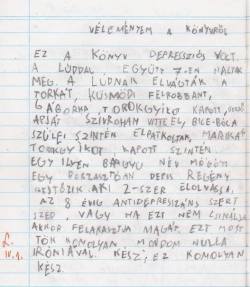 VÉLEMÉNYEM A KÖNYVRŐL
EZ A KÖNYV DEPRESSZIÓS VOLT.
A LÚDDAL EGYÜTT 7-EN HALTAK
MEG. A LÚDNAK ELVÁGTÁK A
TORKÁT, KUSMÓDI FELROBBANT,
GÁBORKA TOROKGYÍKO KAPOTT,
APJÁT SZIVROHAM VITTE EL, BICE-BÓCA
SZÜLEI SZINTÉN ELPATKOLTAK, MARIKA
TOROKGYÍKOT KAPOTT SZINTÉN
EGY ILYEN BAROMU NÉV MÖGÖTT
EGY POSZASZTÓAN DEPIS REGÉNY
REJTŐZIK. AKI 2-SZER ELOLVASSA,
AZ 8 ÉVIG ANTIDEPRESSZÁNS SZERT
SZED, VAGY HA EZT NEM CSINÁLJA
AKKOR FELAKASZTJA MAGÁT. EZT MOST
TÖK KOMOLYAN MONDOM NULLA
IRÓNIÁVAL. KÉSZ, EZ KOMOLYAN
KÉSZ.